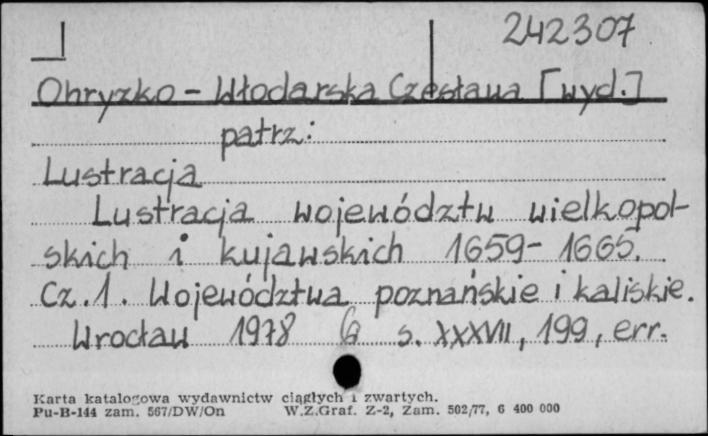 242307
Ohryzko-Włodarska Czesława [wyd.]
patrz:
Lustracja
Lustracja województw wielkopol-
skich i kujawskich 1659-1665.
Cz.1. Województwa poznańskie i kaliskie.
Wrocław 1978 s. XXXVII, 199, err.
Karta katalogowa wydawnictw ciągłych i zwartych.
Pu-B-144 zam. 567/DW/On W.Z.Graf. Z-2, Zam. 502/77, 6 400 000